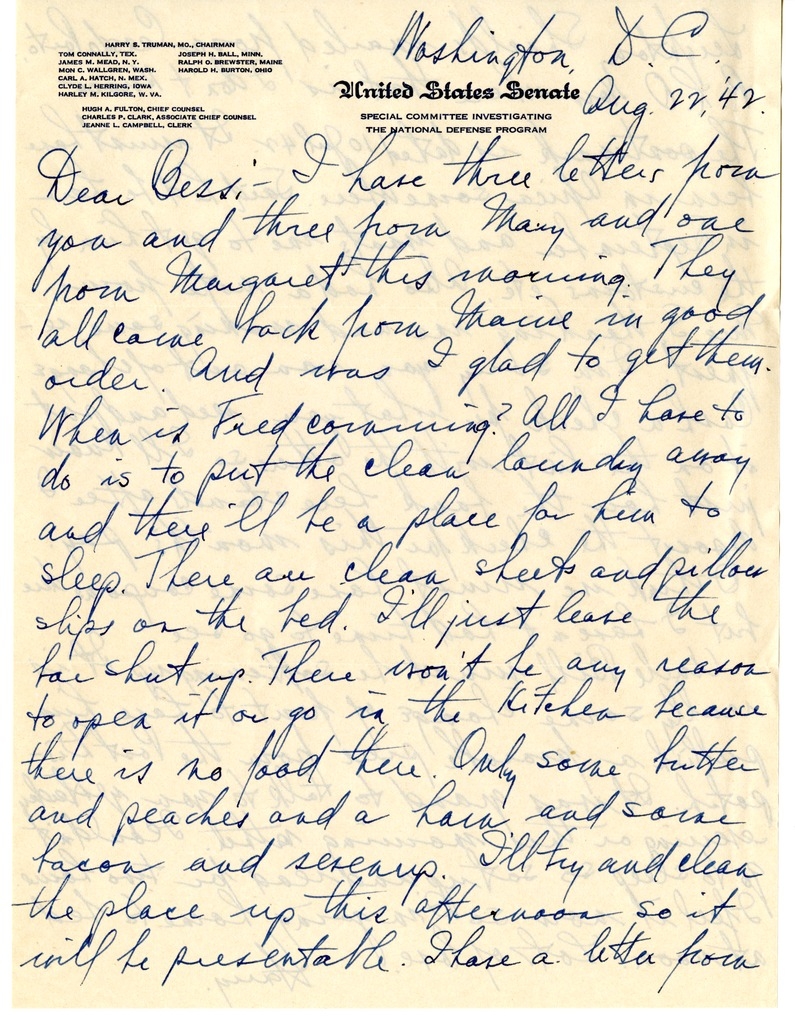 HARRY S. TRUMAN, MO., CHAIRMAN
TOM CONNALLY, TEX. JOSEPH H. BALL, MINN.
JAMES M. MEAD, N. Y. RALPH O. BREWSTER, MAINE
MON C. WALLGREN, WASH. HAROLD H. BURTON, OHIO
CARL A. HATCH, N. MEX.
CLYDE L. HERRING, IOWA
HARLEY M. KILGORE, W. VA.
HUGH A. FULTON, CHIEF COUNSEL
CHARLES P. CLARK, ASSOCIATE CHIEF COUNSEL
JEANNE L. CAMPBELL, CLERK
Washington, D.C.
United States Senate
Aug. 22, '42.
SPECIAL COMMITTEE INVESTIGATING
THE NATIONAL DEFENSE PROGRAM
Dear Bess:- I have three letters from
you and three from Mary and one
from Margaret this morning. They
all came back from Maine in good
order. And was I glad to get them.
When is Fred comming? All I have to
do is to put the clean laundry away
and there'll be a place for him to
sleep. There are clean sheets and pillow
slips on the bed. I'll just leave the
bar shut up. There won't be any reason
to open it or go in the Kitchen because
there is no food there. Only some butter
and peaches and a ham and some
bacon and sevenup. I'll try and clean
the place up this afternoon so it
will be presentable. I have a letter from